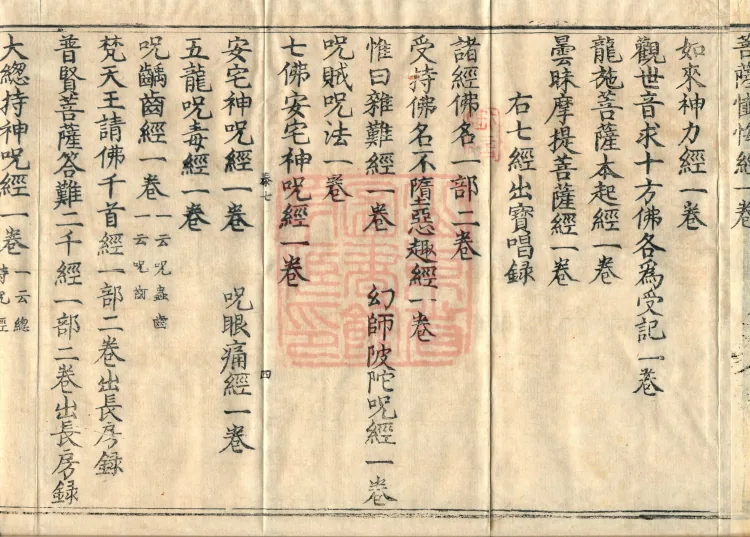 菩薩懺悔經一卷
如來神力經一卷
觀世音求十方佛各為受記一卷
龍施菩薩本起經一卷
曇昧摩提菩薩經一卷
右七經出寶唱録
諸經佛名一部二卷
受持佛名不墮惡趣經一卷
惟曰雜難經一卷 幻師陂陀呪經一卷
呪賊呪法一卷
七佛安宅神呪經一卷
四
安宅神呪經一卷 呪眼痛經一卷
五龍呪毒經一卷
呪齲齒經一卷 一云呪蟲齒 一云呪齒
梵天王請佛千首經一部二卷出長房録
普賢菩薩答難二千經一部二卷出長房録
大緫持神呪經一卷 一云緫持呪經